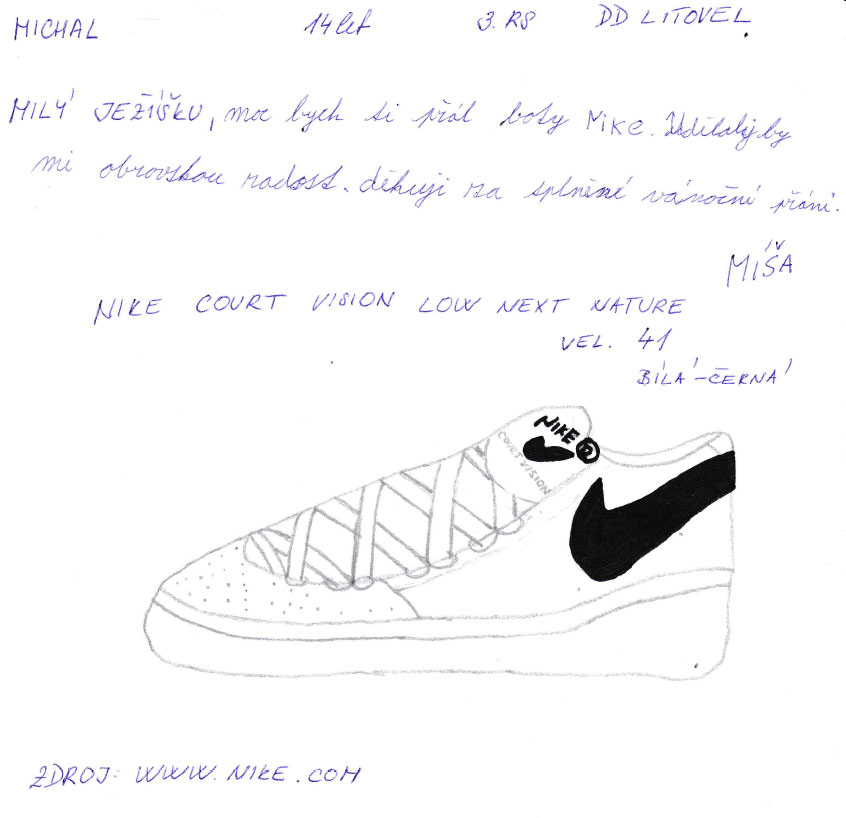 MICHAL 14 let 3. RS DD LITOVEL
MILÝ JEŽÍŠKU, moc bych si přál boty Nike. Udělaly by
mi obrovskou radost. děkuji za splněné vánoční přání.
MÍŠA
NIKE COURT VISION LOW NEXT NATURE
VEL. 41
BÍLÁ-ČERNÁ
NIKE ®
COURT VISION
ZDROJ: WWW.NIKE.COM